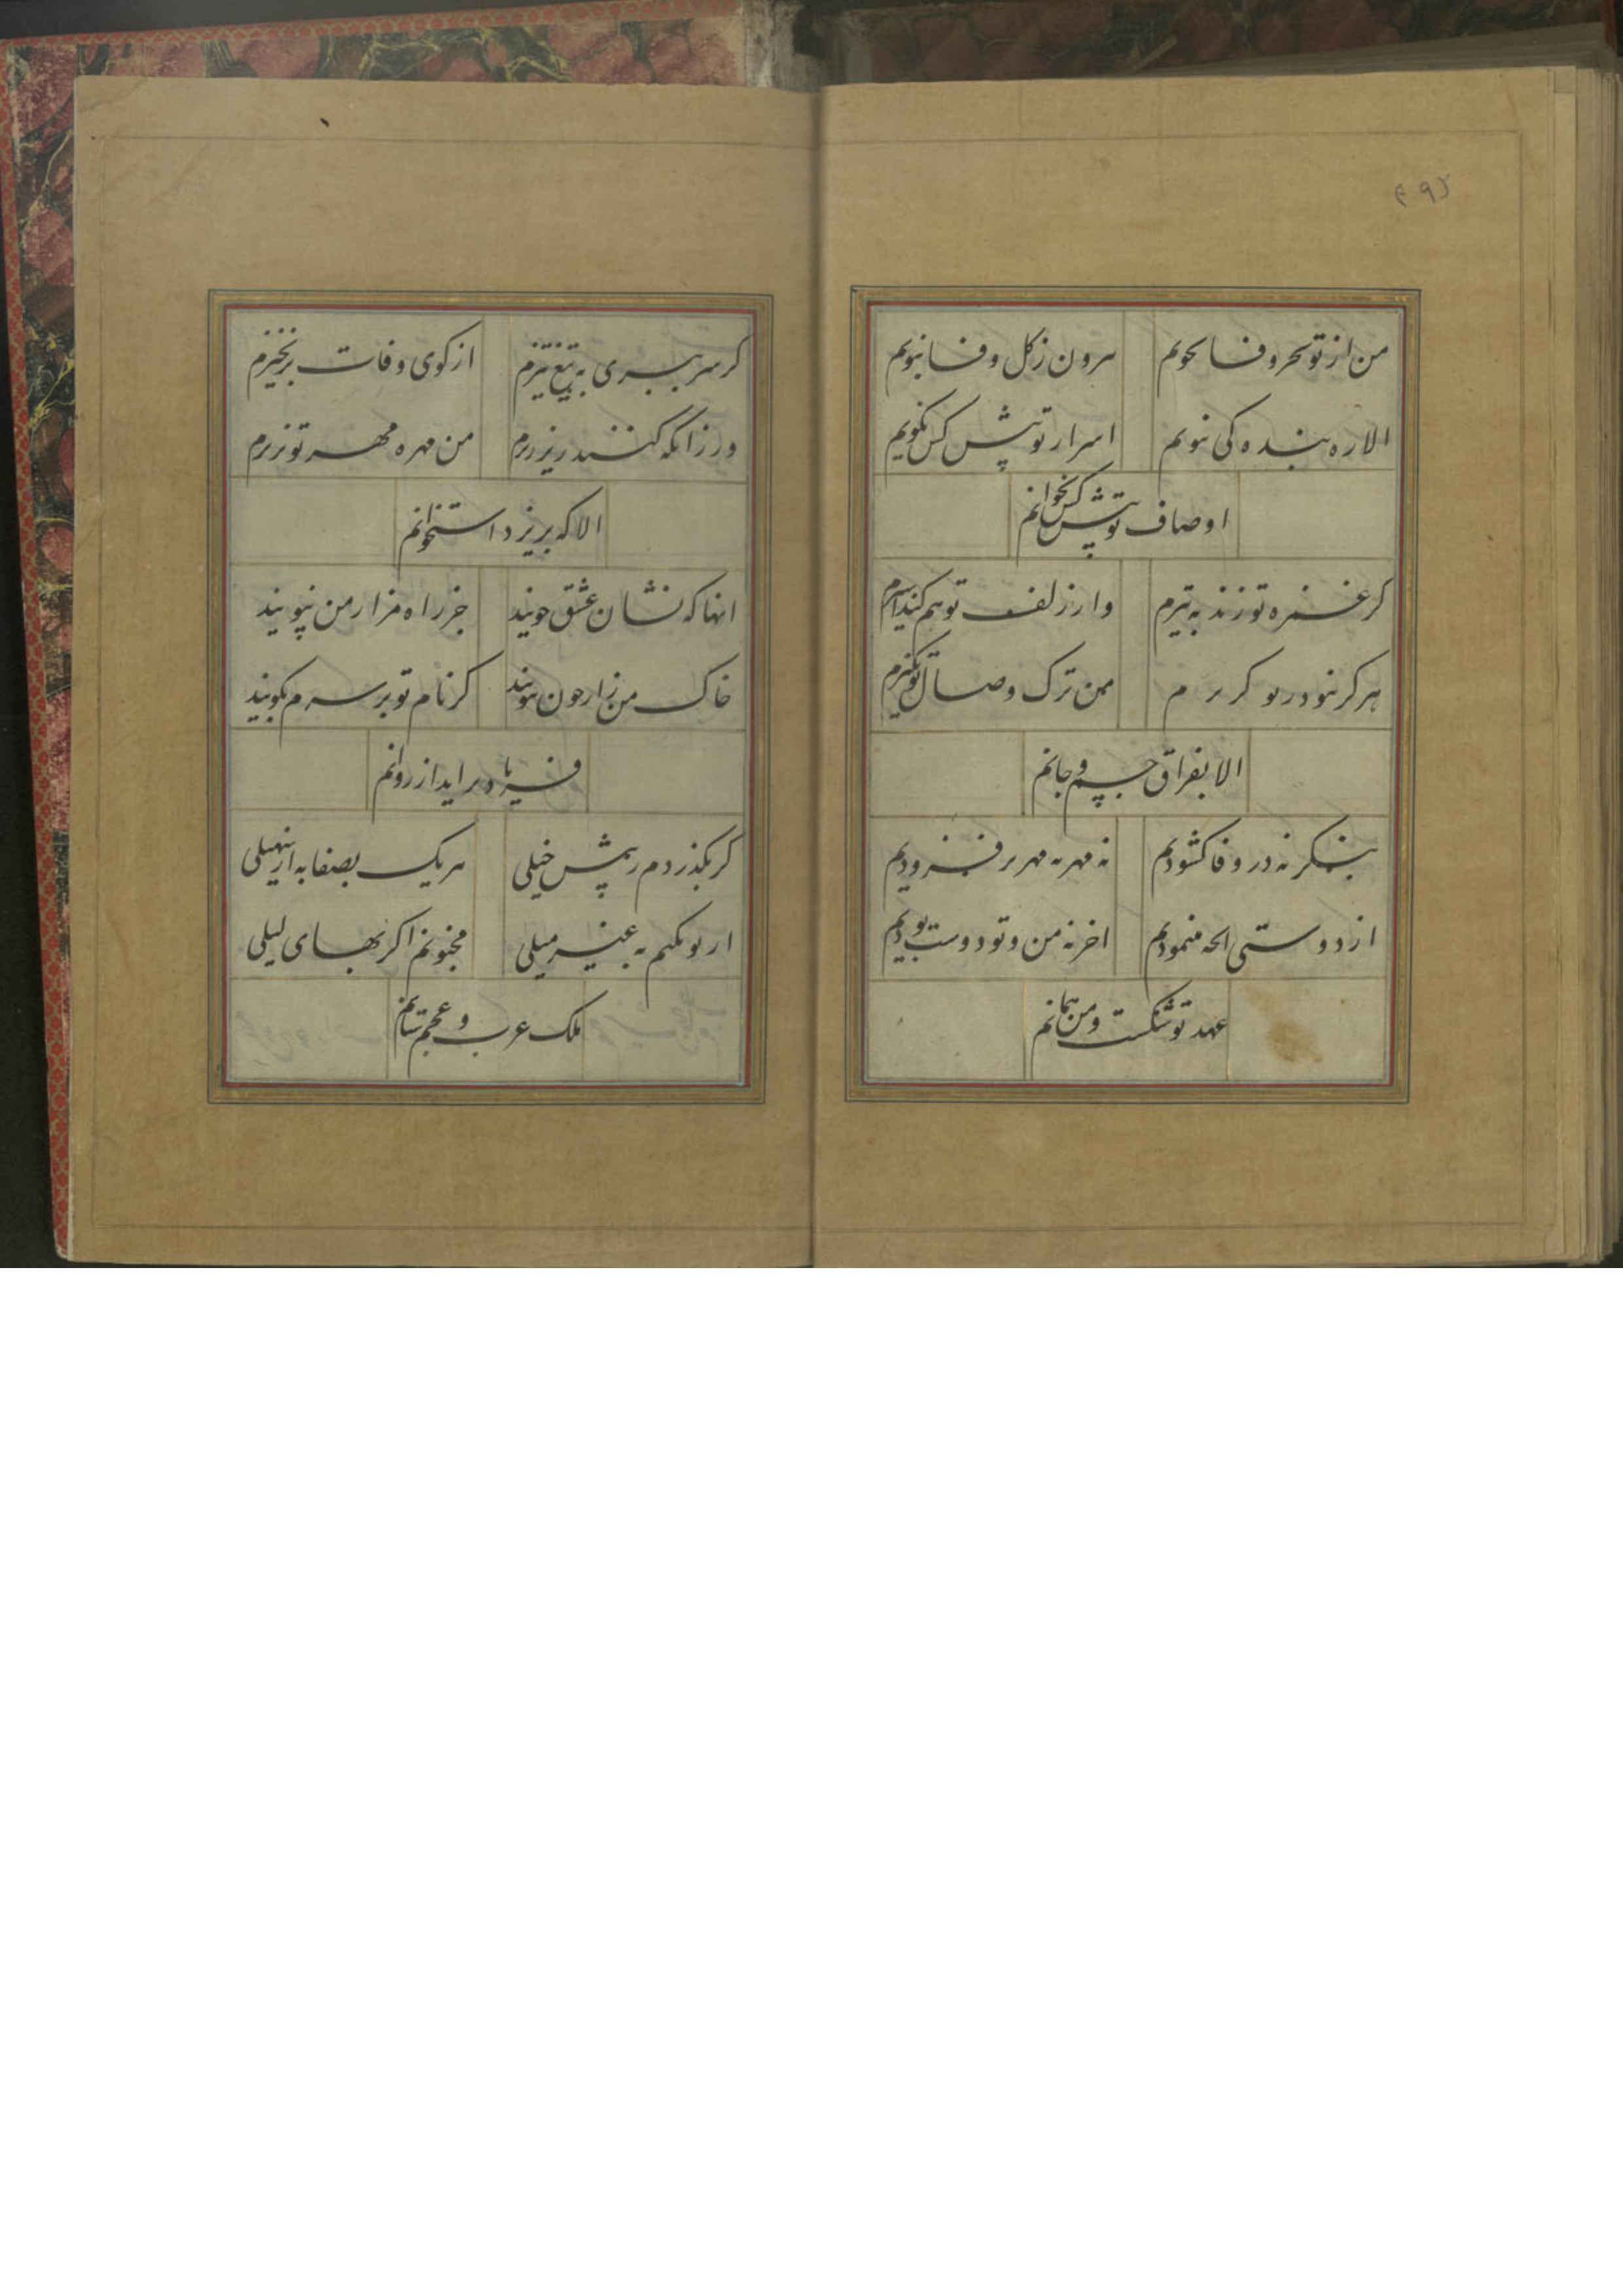 ۲۹
من از تو بجز وفا نجویم بیرون ز گل وفا نبویم
الا ره بندگی نپویم اسرار تو پیش کس نگویم
اوصاف تو پیش کس نخوانم
گر غمزه تو زند به تیرم وار زلف تو هم کند اسیرم
هرگز نبود من ترک وصال تو نگیرم
الا بفراق جسم و جانم
بنگر نه در وفا گشودیم نه مهر به مهر بر فزودیم
از دوستی انچه می نمودیم اخر نه من و تو دوست بودیم
عهد تو شکست و من همانم
گر سر ببری به تیغ تیزم از کوی وفات بر نخیزم
ور زانکه کنند ریز ریزم من مهره مهر تو نریزم
الا که بریزد استخوانم
انها که نشان عشق جویند جز راه مزار من نپویند
خاک من زار چون ببویند گر نام تو بر سرم بگویند
فریاد بر اید از روانم
گر بگذرد م ز پیش خیلی هر یک بصفا به از سهیلی
از تو نکنم به غیر میلی مجنونم اگر بهای لیلی
ملک عرب و عجم ستانم